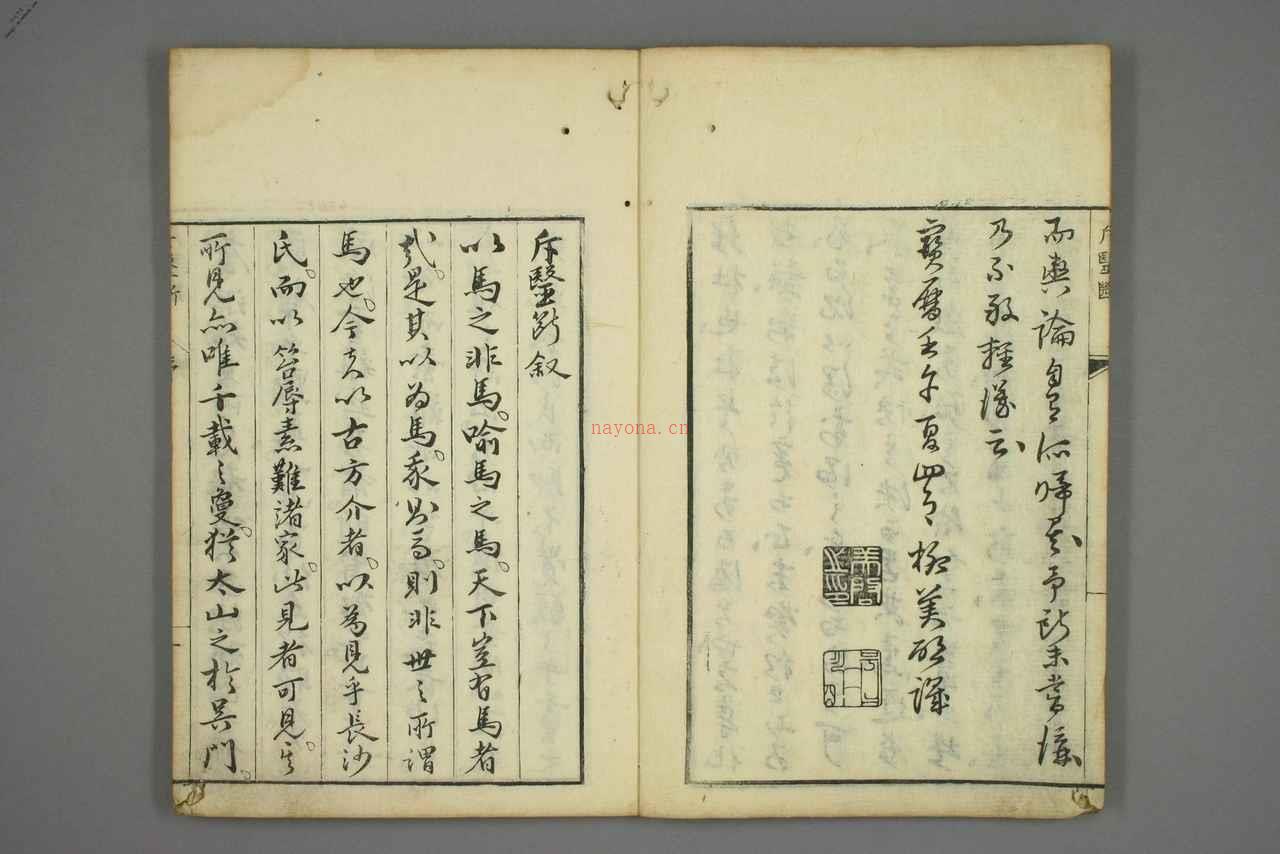 而輿論自有所歸矣予斷未嘗議
乃不敢輕議云
寶曆壬午夏四月 柳美啟譔
斥醫斷
斥醫斷叙
以馬之非馬。喻馬之馬。天下豈有馬者
哉。是其以為馬。我則為。則非世之所謂
馬也。今夫以古方介者。以為見乎長沙
氏。而以笞辱素難諸家。此見者可見。其
所見亦唯千載之夐。猶太山之於吳門。
nayona.cn